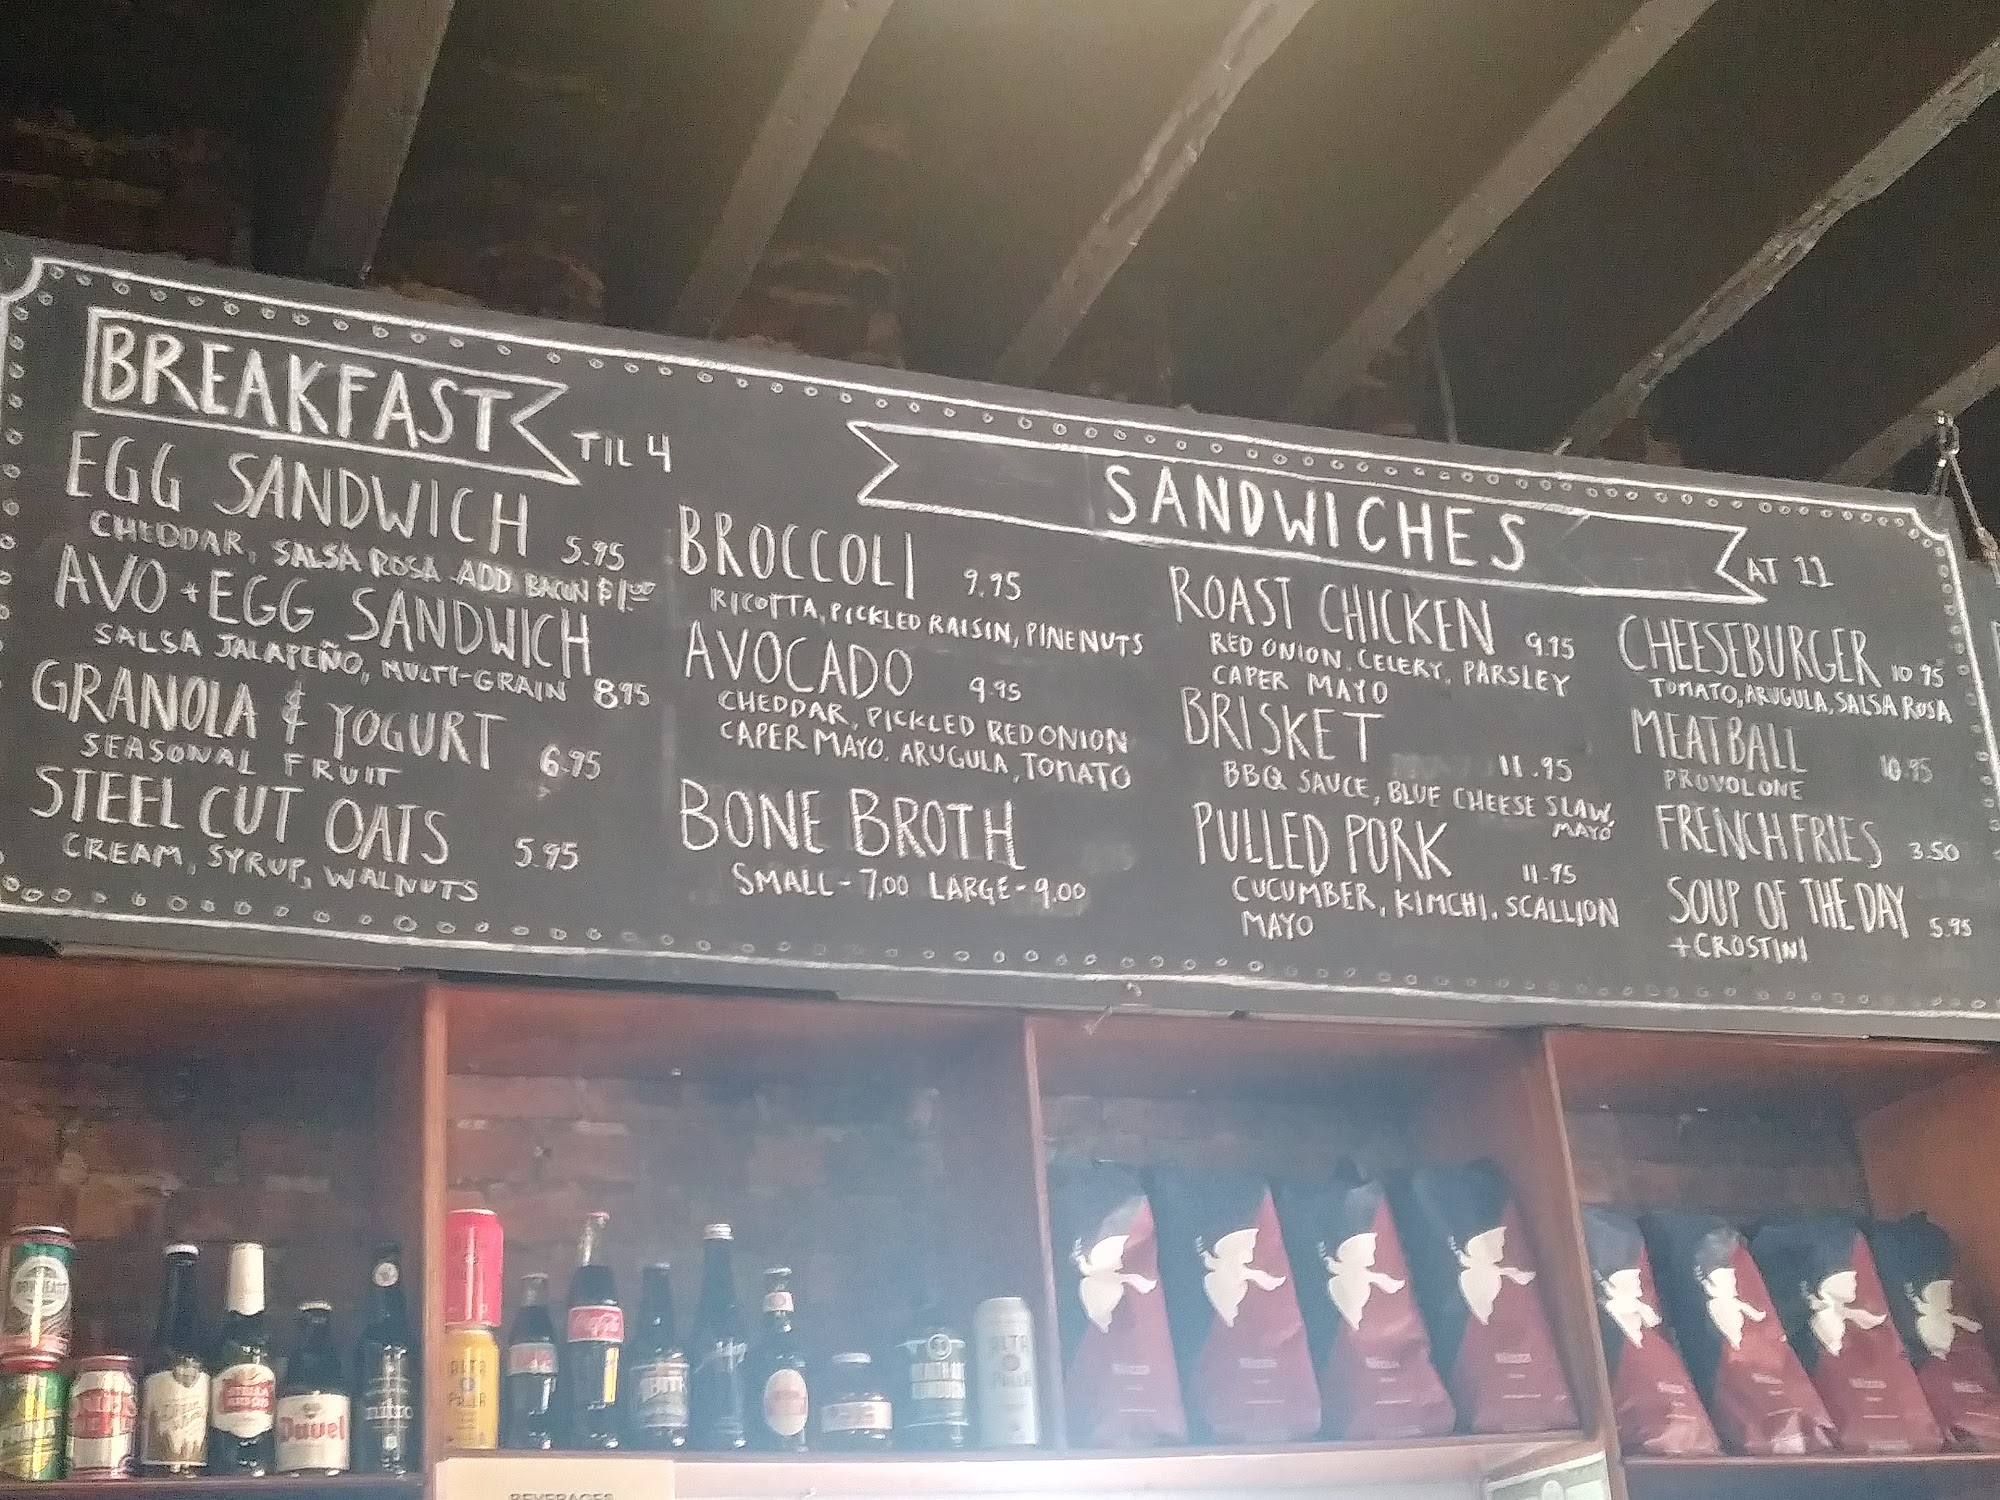 BREAKFAST TIL 4
EGG SANDWICH 5.95
CHEDDAR, SALSA ROSA ADD BACON $1.00
AVO + EGG SANDWICH
SALSA JALAPEÑO, MULTI-GRAIN 8.95
GRANOLA & YOGURT 6.95
SEASONAL FRUIT
STEEL CUT OATS 5.95
CREAM, SYRUP, WALNUTS
SANDWICHES AT 11
BROCCOLI 9.95
RICOTTA, PICKLED RAISIN, PINENUTS
AVOCADO 9.95
CHEDDAR, PICKLED RED ONION
CAPER MAYO, ARUGULA, TOMATO
BONE BROTH
SMALL - 7.00 LARGE - 9.00
ROAST CHICKEN 9.95
RED ONION, CELERY, PARSLEY
CAPER MAYO
BRISKET 11.95
BBQ SAUCE, BLUE CHEESE SLAW,
MAYO
PULLED PORK 11.95
CUCUMBER, KIMCHI, SCALLION
MAYO
CHEESEBURGER 10.95
TOMATO, ARUGULA, SALSA ROSA
MEATBALL 10.95
PROVOLONE
FRENCH FRIES 3.50
SOUP OF THE DAY 5.95
+ CROSTINI
STELLA
Duvel
nitro
ALTA
PALLA
Coca-Cola
ALTA
PALLA
BEVERAGES